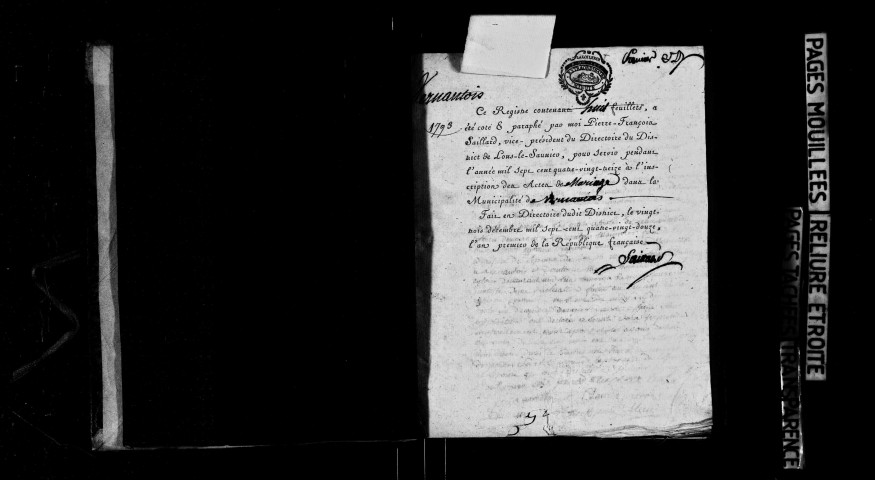 Premier
Vernantois
1793
Ce Registre contenant huit feuillets, a
été coté & paraphé par moi Pierre-François
Saillard, vice-président du Directoire du Dis-
trict de Lons-le-Saunier, pour servir pendant
l'année mil sept cent quatre-vingt-treize à l'ins-
cription des Actes de Mariage dans la
Municipalité de Vernantois
Fait en Directoire dudit District, le vingt-
trois décembre mil sept cent quatre-vingt-douze,
l'an premier de la République française
Saillard
PAGES MOUILLEES
RELIURE ETROITE
PAGES TACHEES
TRANSPARENCE